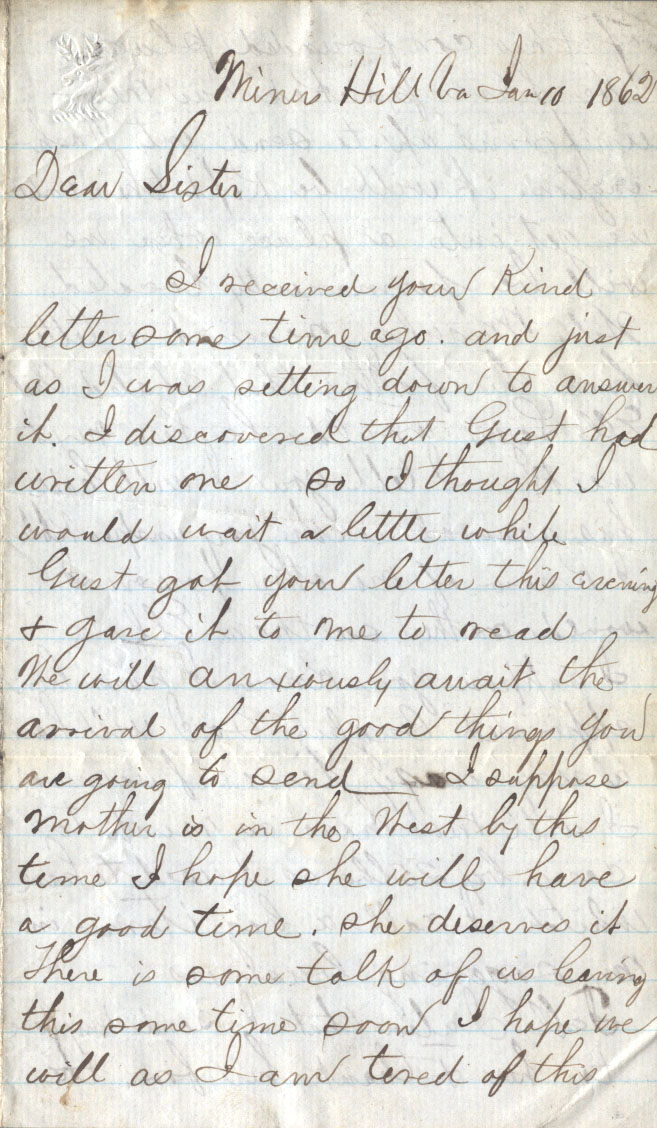 Miners Hill Va Jan 10 1862
Dear Sister
I received your Kind
letter some time ago. and just
as I was setting down to answer
it. I discovered that Gust had
written one so I thought I
would wait a little while
Gust got your letter this evening
& gave it to me to read
We will anxiously await the
arrival of the good things you
are going to send I suppose
Mother is in the West by this
time I hope she will have
a good time. she deserves it
There is some talk of us leaving
this some time soon I hope we
will as I am tired of this